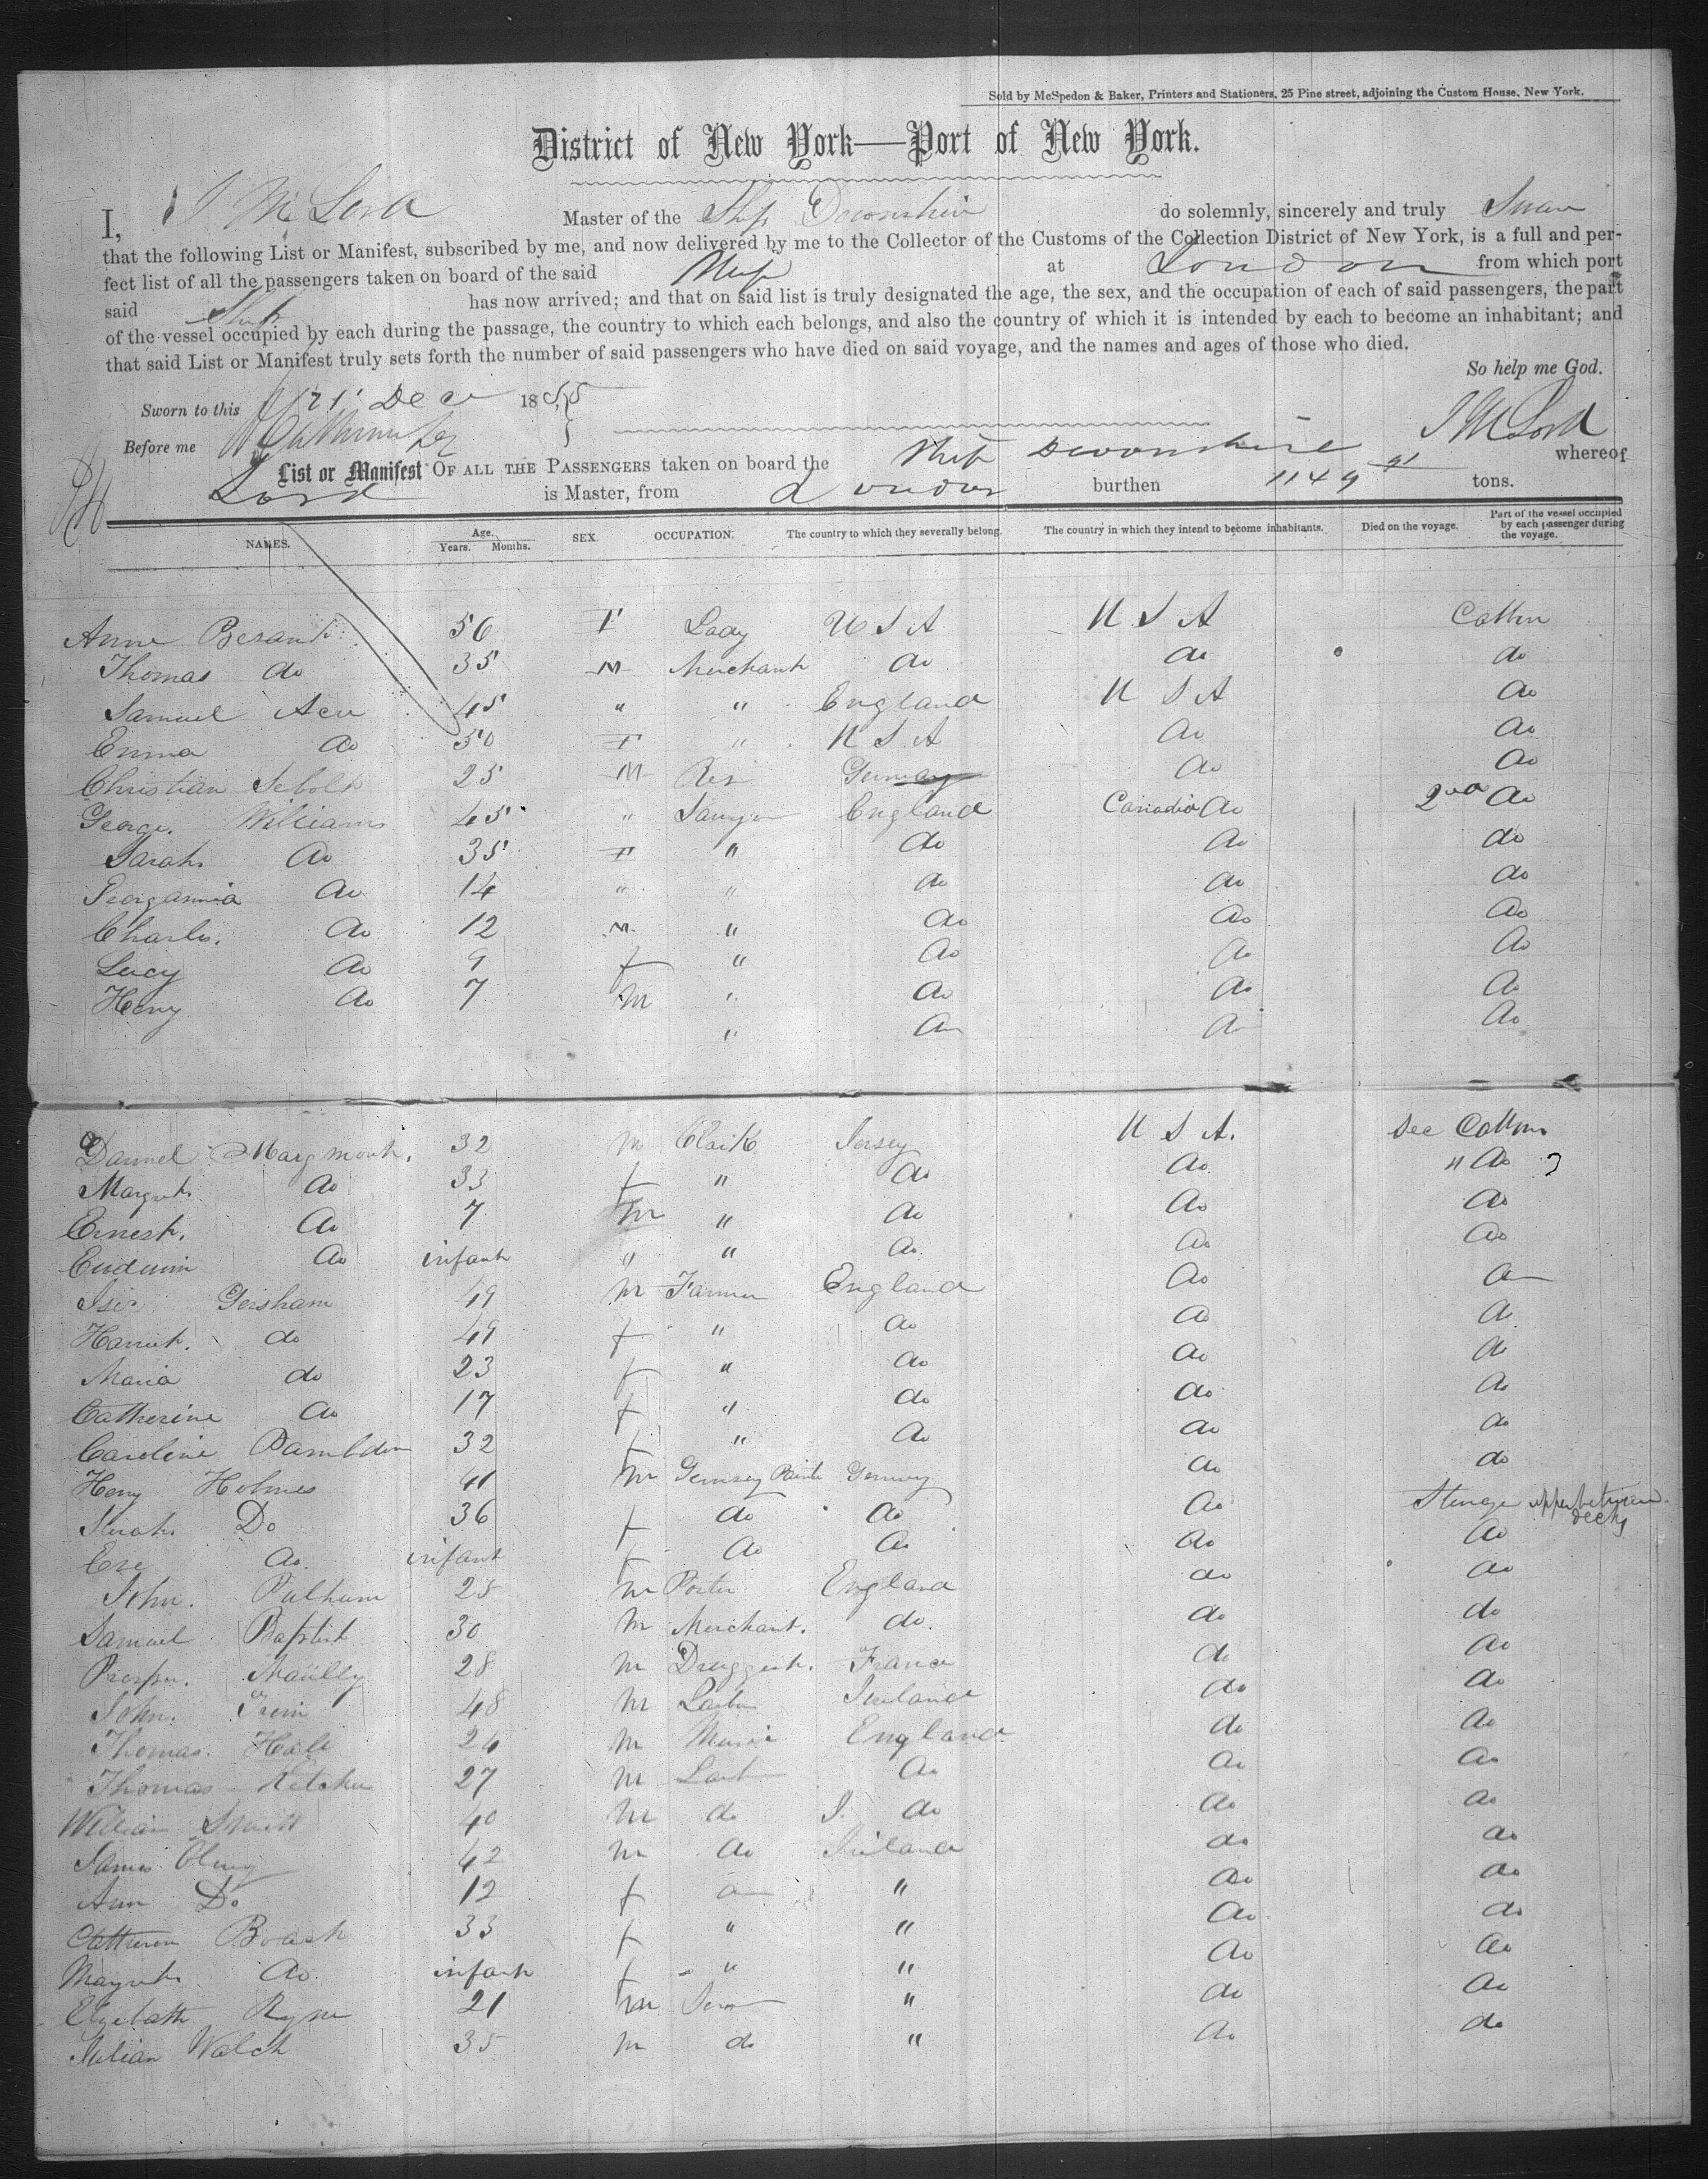 Sold by McSpedon & Baker, Printers and Stationers, 25 Pine street, adjoining the Custom House, New York.
District of New York—Port of New York.
I, J M Lord Master of the Ship Devonshire do solemnly, sincerely and truly Swear
that the following List or Manifest, subscribed by me, and now delivered by me to the Collector of the Customs of the Collection District of New York, is a full and per-
fect list of all the passengers taken on board of the said Ship at London from which port
said Ship has now arrived; and that on said list is truly designated the age, the sex, and the occupation of each of said passengers, the part
of the vessel occupied by each during the passage, the country to which each belongs, and also the country of which it is intended by each to become an inhabitant; and
that said List or Manifest truly sets forth the number of said passengers who have died on said voyage, and the names and ages of those who died.
So help me God.
Sworn to this 21 Dec 1855
Before me J M Lord
List or Manifest OF ALL THE PASSENGERS taken on board the Ship Devonshire whereof
Lord is Master, from London burthen 1149 91 tons.
NAMES. Age. Years. Months. SEX. OCCUPATION. The country to which they severally belong. The country in which they intend to become inhabitants. Died on the voyage. Part of the vessel occupied by each passenger during the voyage.
Anne 56 F Lady U S A U S A Cabbin
Thomas do 35 M Merchant do do do
Samuel 45 " " England U S A do
Emma do 30 F " U S A do do
Christian Sebolt 25 M Germany do do
George Williams 45 " England Canada do 2nd do
Sarah do 35 F " do do do
Georgannia do 14 " " do do do
Charles do 12 M " do do do
Lucy do 9 f " do do do
Henry do 7 m " do do do
" do do do
Daniel 32 m Clark Jersey U S A. Sec Cabbin
Margret do 33 f " do do " do
Ernest do 7 m " do do do
do infant " " do do do
Gersham 49 m Farmer England do do
Harriet do 49 f " do do do
Maria do 23 f " do do do
Catherine do 17 f " do do do
Caroline 32 f " do do do
Heny Holmes 41 m Germany do do
Sarah Do 36 f do do do Sterage upper between decks
do infant f do do do do
John Pulham 25 m Porter England do do
Samuel Baptist 30 m Merchant do do do
28 m Druggist France do do
John 48 m Labor Ireland do do
Thomas Hall 24 m England do do
Thomas 27 m Lab do do do
William Smith 40 m do do do do
James 42 m do Ireland do do
Ann Do 12 f do " do do
Catheren 33 f " " do do
Margret do infant f " " do do
Elizebath Ryan 21 m " do do
Julian Walch 35 m do " do do